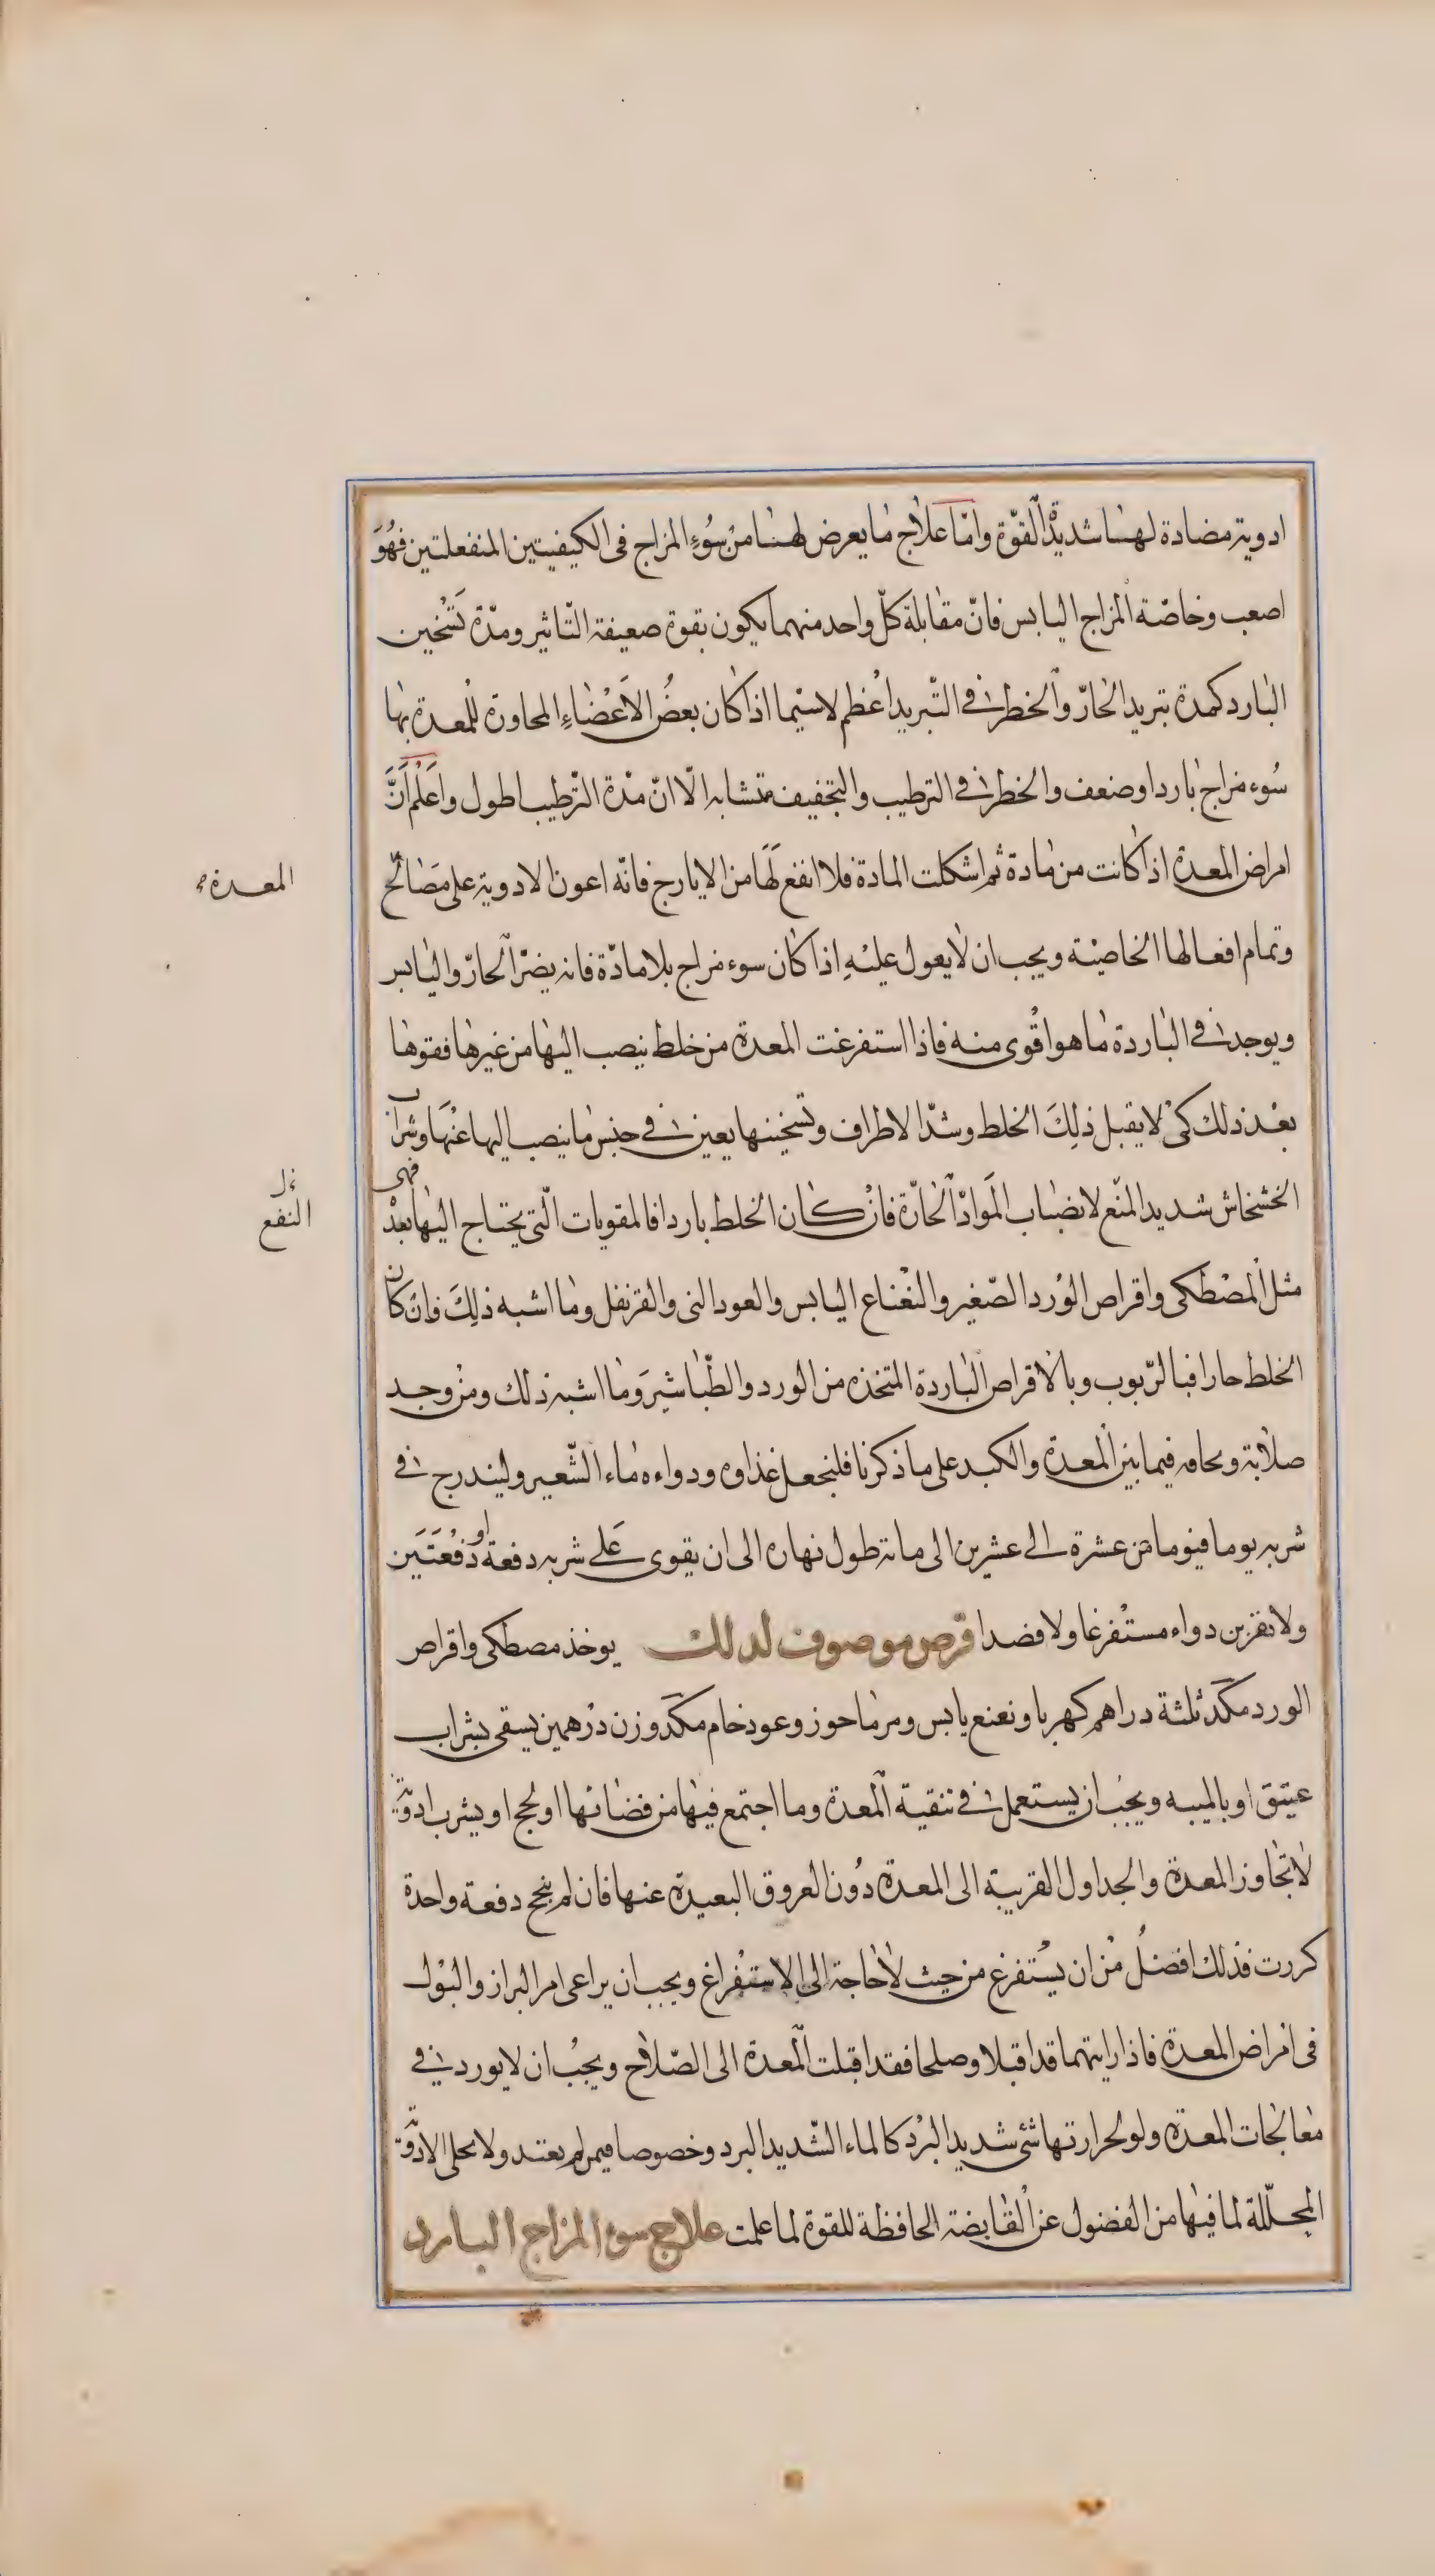 ادوية مضادة لهنا شديدة القوّة وامّا علاج ما يعرض لهنا من سُوءِ المزاج فى الكيفيتين المنفعلتين فهُوَ
اصعب وخاصّة المزاج اليابس فانّ مقابلة كلّ واحد منهما يكون بقوة صعيفة التّاثير ومدّة تَسْخين
البارد كمدة تبريد الحارّ والخطر فى التّبريد اعْظم لاسيّما اذا كان بعضُ الاَعْضاءِ المجاورة للمعدة بها
سُوء مزاج بارد او ضعف والخطر فى الترطيب والتجفيف متشابه الّا انّ مدّة الترطيب اطول واَعْلَم اَنَّ
امراض المعدة اذا كانت من مادة ثم اشكلت المادة فلا انفع لَهَا من الايارج فانّه اعون الادوية على مصَالح
المعدة
وتمام افعالها الخاصيّة ويجب ان لا يعول عليْهِ اذا كان سوء مزاج بلا مادّة فانه يضرّ الحارّ واليابس
ويوجد فى الباردة ما هو اقْوى منه فاذا استفرغت المعدة من خلط ينصب اليها من غيرها فقوها
بعْد ذلك كىْ لا يقبل ذلِكَ الخلط وشدّ الاطراف وتسْخينها يعين فى حبْس ما ينصب اليها عنْهَا وشراب
الخشخاش شديد المنْع لانصباب الموَادّ الحارّة فانْ كان الخلط باردا فالمقويات الّتى يحتاج اليها بعدْ فهى
النفع
مثل المصْطكى واقراص الوْرد الصّغير والنعْناع اليابس والعود النى والقرنفل وما اشبه ذلِكَ وان كان
الخلط حارا فبالرّبوب وبالاقراص الباردة المتخذه من الورد والطّباشير وَما اشبه ذلك ومنْ وجد
صلابة و فيما بين المعدة والكبد على ما ذكرنا فليجعل غذاوه ودواءه ماء الشّعير وليندرج فى
شربه يوما فيوما من عشرة الى عشرين الى مائة طول نهاره الى ان يقوى عَلى شربه دفعة او دُفْعَتَين
ولا تقربن دواء مستفرغا ولا فصدا قرص موصوف لذلك يوخذ مصطكى واقراص
الورد مكَد ثلثة دراهم كهربا ونعنع يابس ومرماحوز وعود خام مكَد وزن درْهمين يسقى بشراب
عتيق او بالميبه ويجبُ ان يستعمل فى تنقية المعدة وما اجتمع فيها من فضائها او لحج او يشرب ادويَة
لا تجاوز المعدة والجداول القريبة الى المعدة دُون العروق البعيدة عنها فان لم ينجح دفعة واحدة
كررت فذلك افضلُ منْ ان يُسْتفرغ من حيث لا حاجة الى الاستفراغ ويجب ان يراعى امر البراز والبوْل
فى امْراض المعدة فاذا رايتهما قد اقبلا وصلحا فقد اقبلت المعدة الى الصّلاح ويجبُ ان لا يورد فى
معالجات المعدة ولو لحرارتها شىْ شديد البرْد كالماء الشّديد البرد وخصوصا فيمن لم يعتد ولا يخلى الادويَة
المحلّلة لما فيها من الفضول عن القابضة الحافظة للقوة لما علمت علاج سوء المزاج البارد